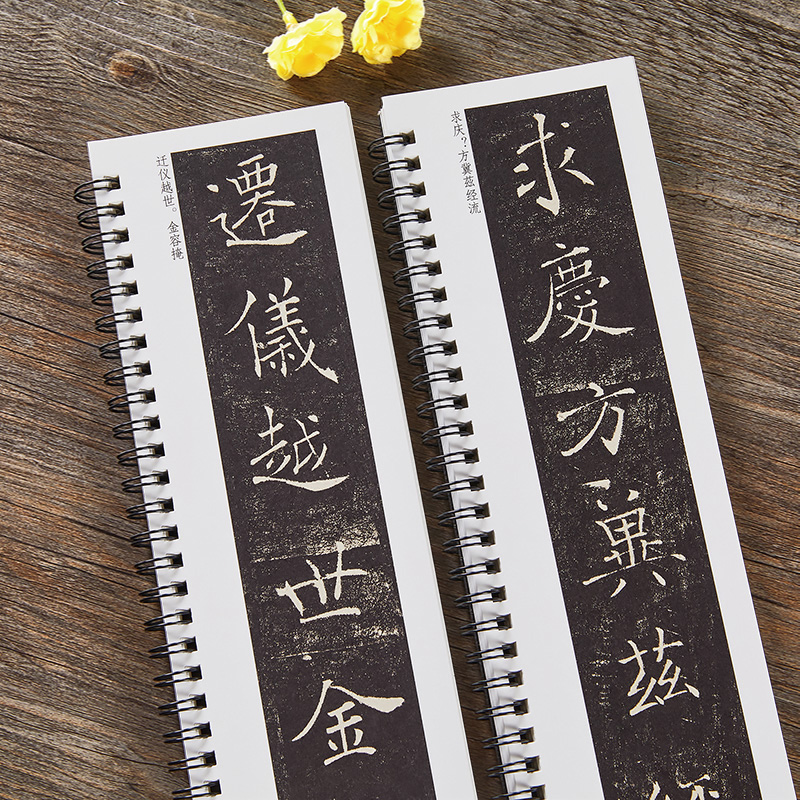 迁仪越世。金容掩
遷儀越世金
求庆?方冀兹经流
求慶方冀茲